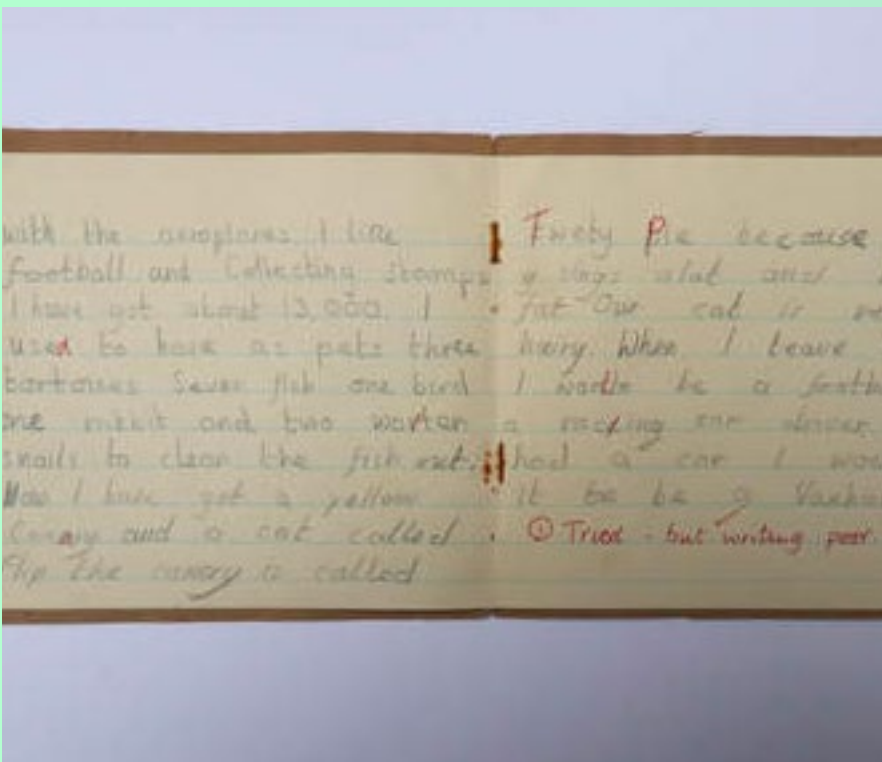 with the aeroplanes I like
football and Collecting stamps
I have got about 13,000. I
used to have as pets three
tortoises Seven fish one bird
one rabbit and two
snails to clean the fish out.
Now I have got a yellow
Canary and a cat called
Flip The canary is called
Twety Pie because
sings alot and
fat Our cat is
hary. When I leave
I be a
a racing car driver.
had a car I
it to be a
① Tried - but writing poor.